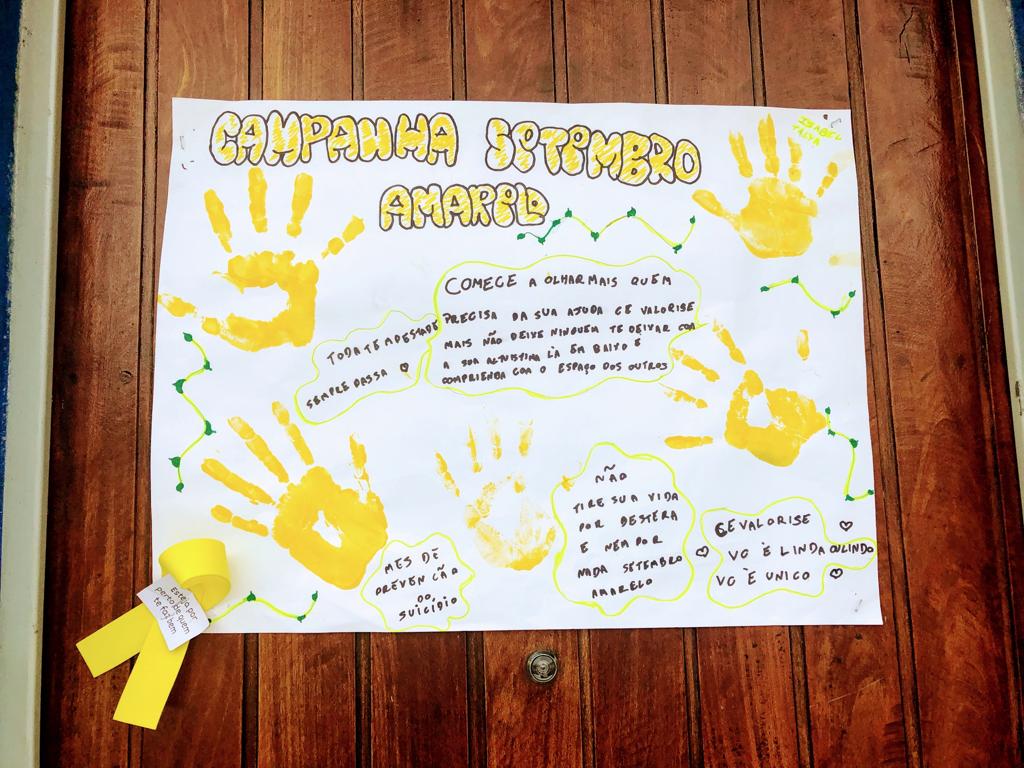 CAMPANHA SETEMBRO
AMARELO
ISABEL
COMECE A OLHAR MAIS QUEM
PRECISA DA SUA AJUDA CE VALORISE
MAIS NÃO DEIVE NINGUEM TE DEIVAR COA
A SUA LÀ EM BAIXO E
COMPRIENDA COA O ESPAÇO DOS OUTROS
TODA TEMPESTADE
SEMPRE PASSA
NÃO
TIRE SUA VIDA
POR BESTERA
E NEM POR
NADA SETEMBRO
AMARELO
CEVALORISE
VC È LINDA OULINDO
VC È UNICO
MES DE
PREVEN CÃO
DO
SUICÍDIO
Esteja por
perto de quem
te faz bem